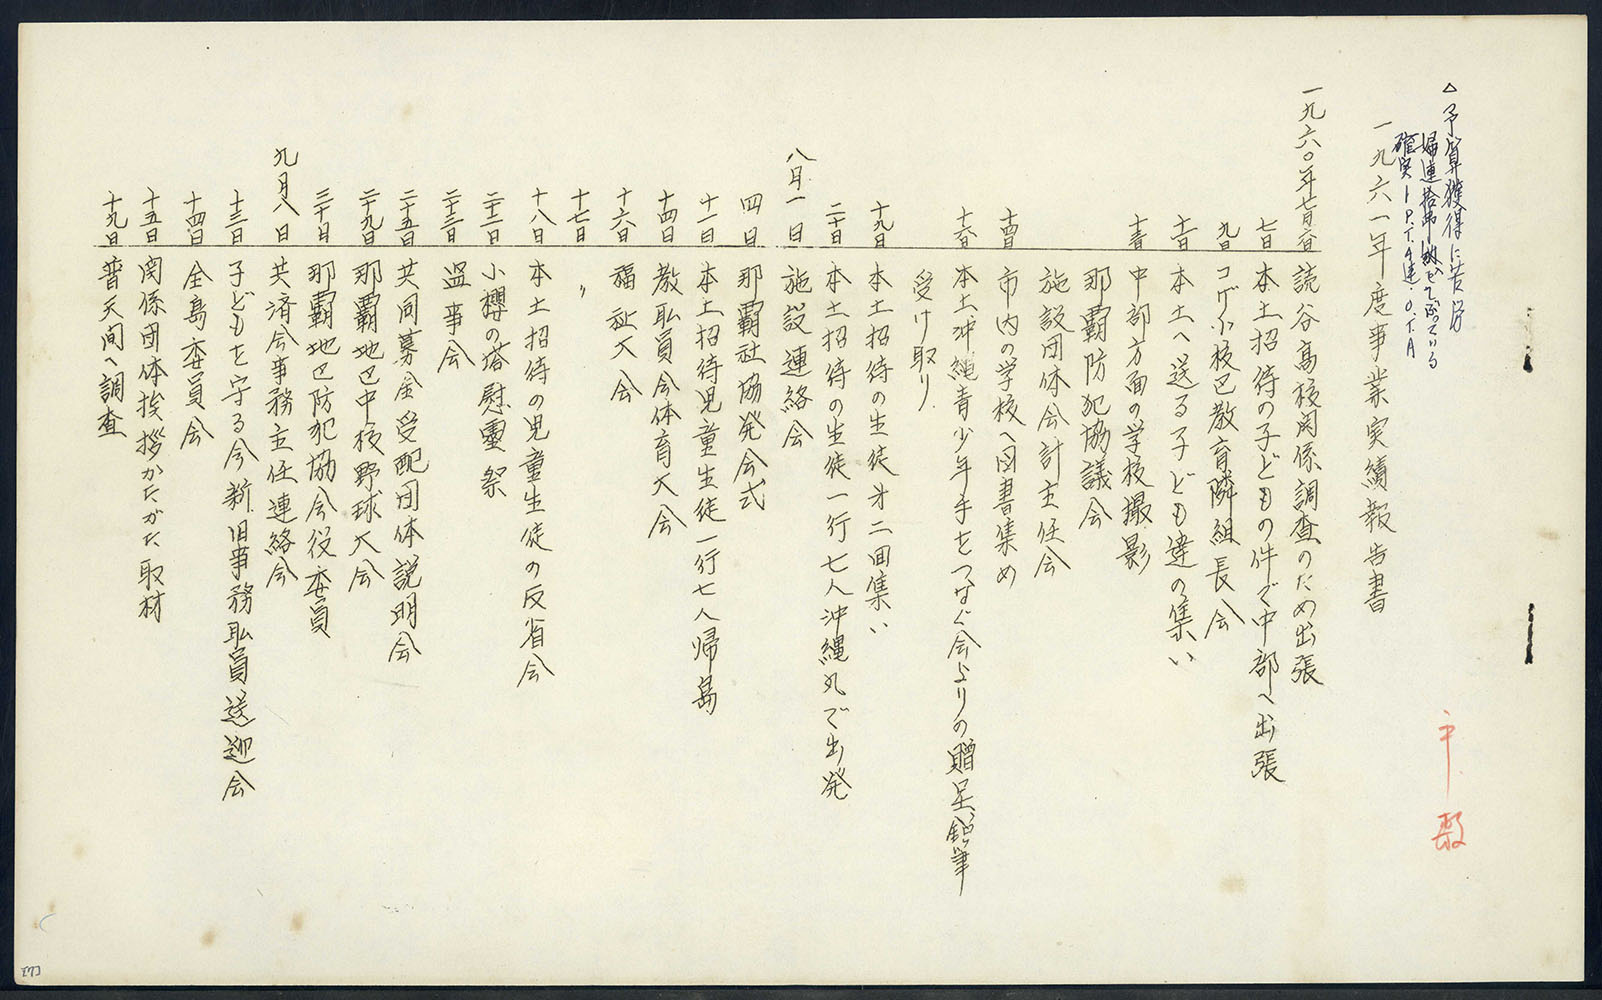 △予算獲得に苦労
婦連拾弗
確実 P.T.A連.O.T.A
一九六一年度事業実績報告書
一九六〇年七月六日 読谷高校関係調査のため出張
七日 本土招待の子どもの件で中部へ出張
九日 コザ小校区教育隣組長会
十二日 本土へ送る子ども達の集い
十三日 中部方面の学校撮影
那覇防犯協議会
施設団体会計主任会
十四日 市内の学校へ図書集め
十六日 本土、沖縄青少年手をつなぐ会よりの贈呈、鉛筆
受け取り
十九日 本土招待の生徒オ二回集い
二十日 本土招待の生徒一行七人沖縄丸で出発
八月一日 施設連絡会
四日 那覇社協発会式
十一日 本土招待児童生徒一行七人帰島
十四日 教职員会体育大会
十六日 福祉大会
十七日 〃
十八日 本土招待の児童生徒の反省会
二十二日 小櫻の塔慰霊祭
二十三日 温事会
二十五日 共同募金受配団体説明会
二十九日 那覇地区中校野球大会
三十日 那覇地区防犯協会役委員
九月八日 共済会事務主任連絡会
十三日 子どもを守る会新旧事務职員送迎会
十四日 全島委員会
十五日 関係団体挨拶かたがた取材
十九日 普天間へ調査
[7]